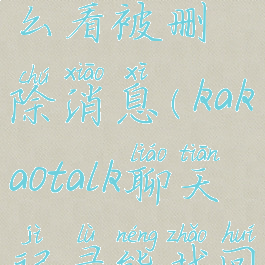 么看被删
chú xiāo xī
除消息(kak
liáo tiān
aotalk聊天
jì lù néng zhǎo huí
记录能找回